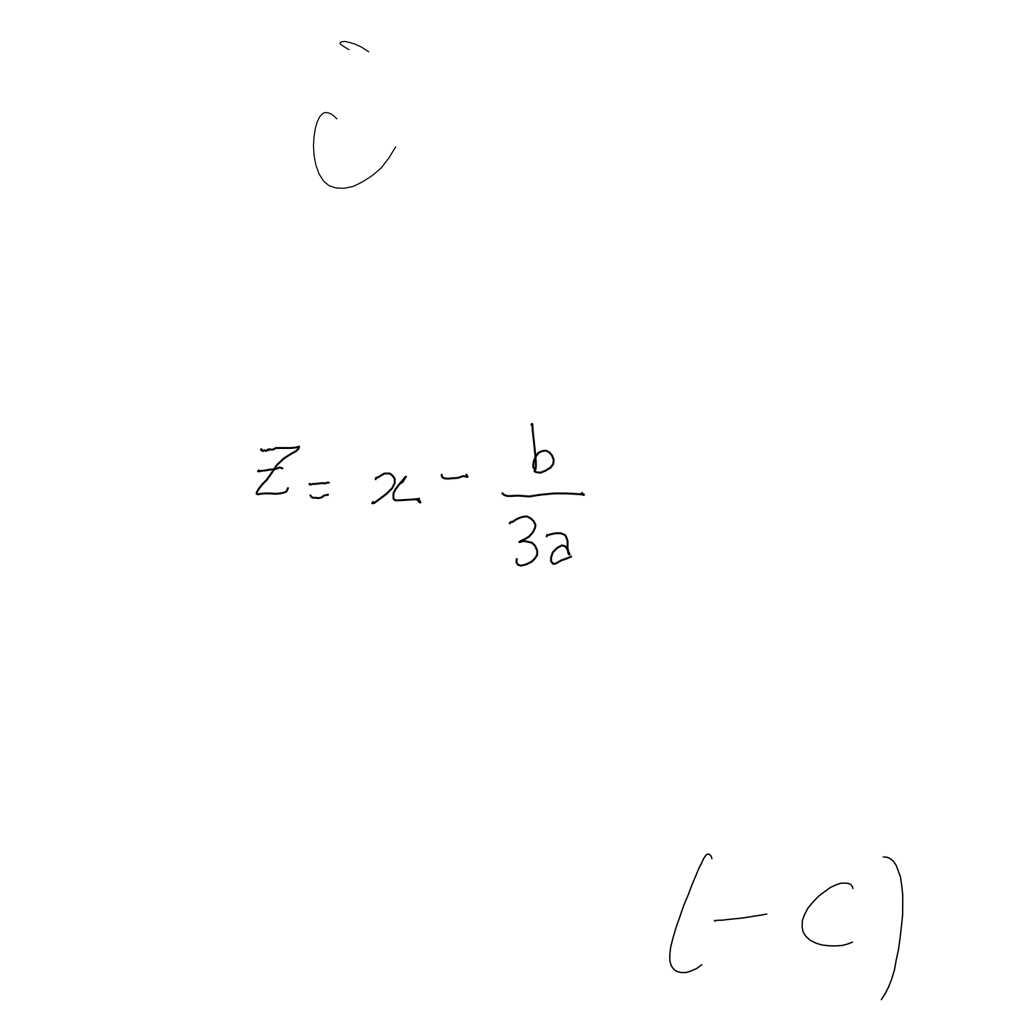 i
z = x - \frac{b}{3a}
(-c)